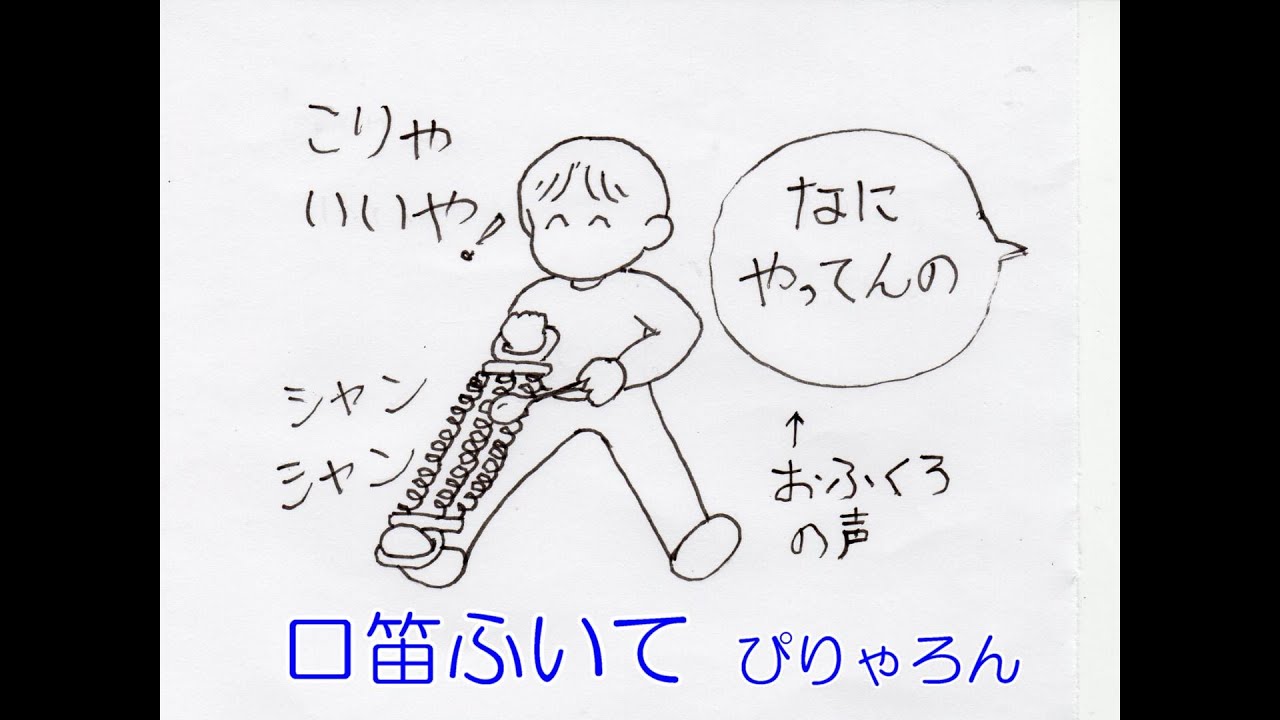 こりゃ
いいや!
なに
やってんの
シャン
シャン
↑
おふくろ
の声
口笛ふいて ぴりゃろん